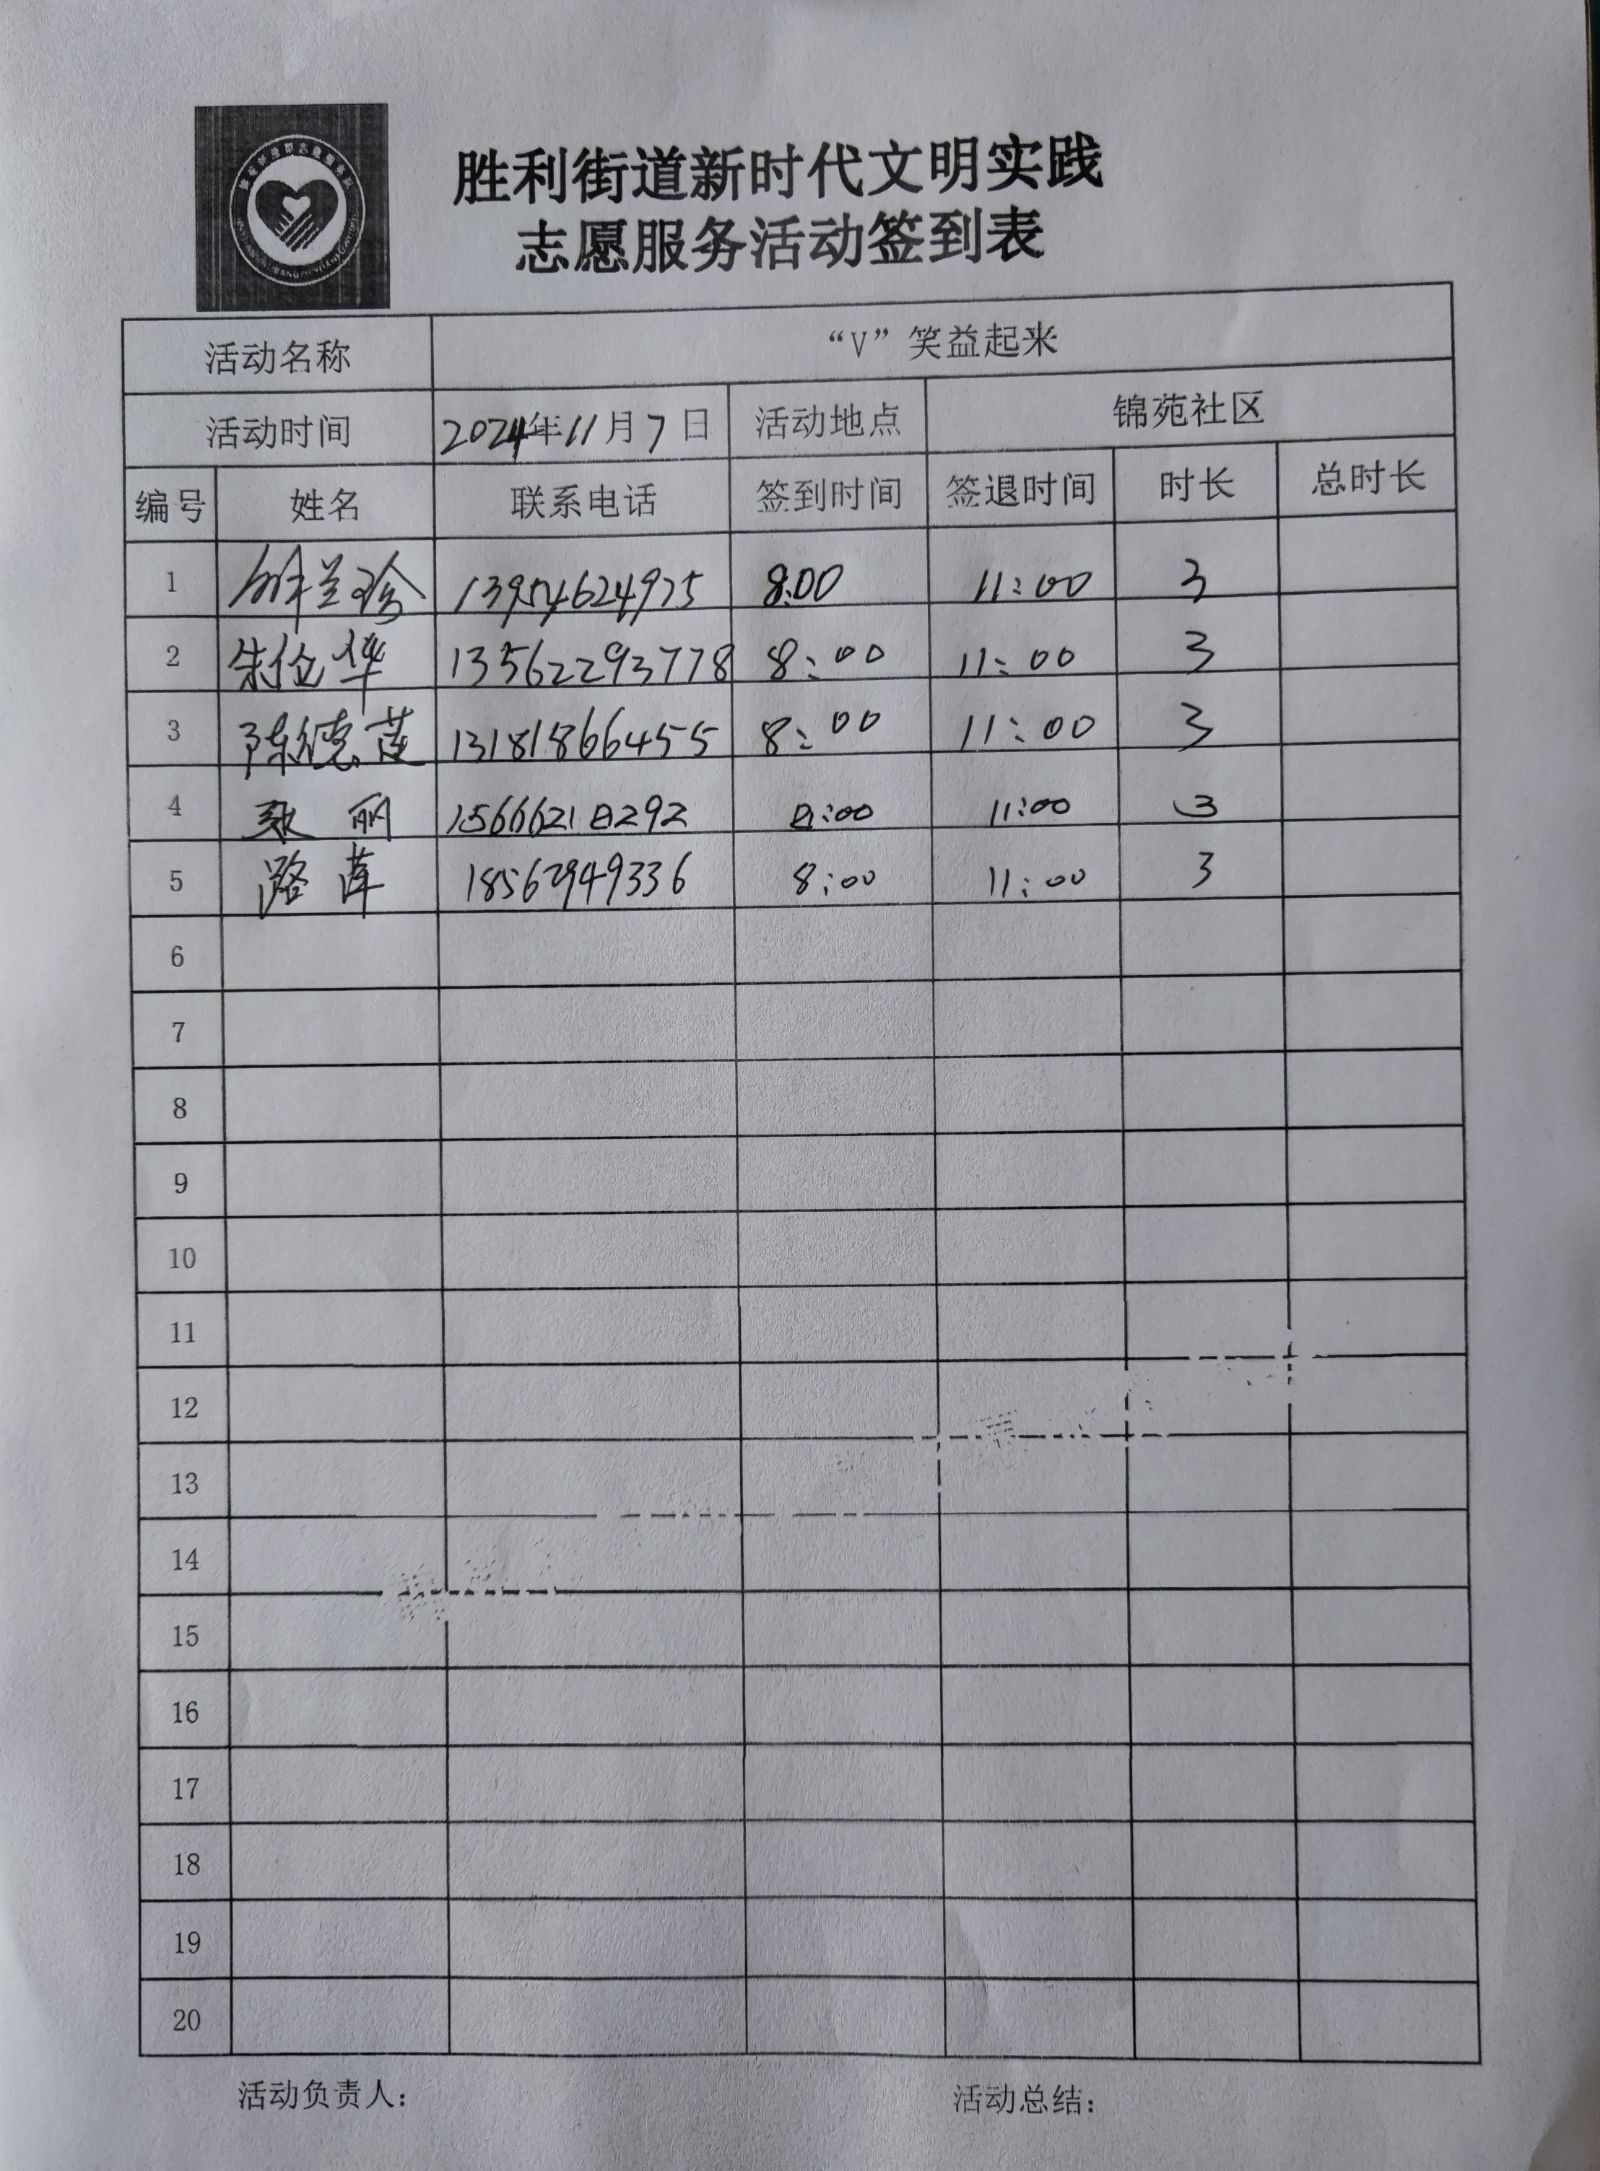 胜利街道新时代文明实践
志愿服务活动签到表
活动名称 “V”笑益起来
活动时间 2024年11月7日 活动地点 锦苑社区
编号 姓名 联系电话 签到时间 签退时间 时长 总时长
1 兰珍 13954624975 8:00 11:00 3
2 朱俭华 13562293778 8:00 11:00 3
3 陈德莲 13181866455 8:00 11:00 3
4 张丽 15666218292 8:00 11:00 3
5 路萍 18562949336 8:00 11:00 3
6
7
8
9
10
11
12
13
14
15
16
17
18
19
20
活动负责人： 活动总结：